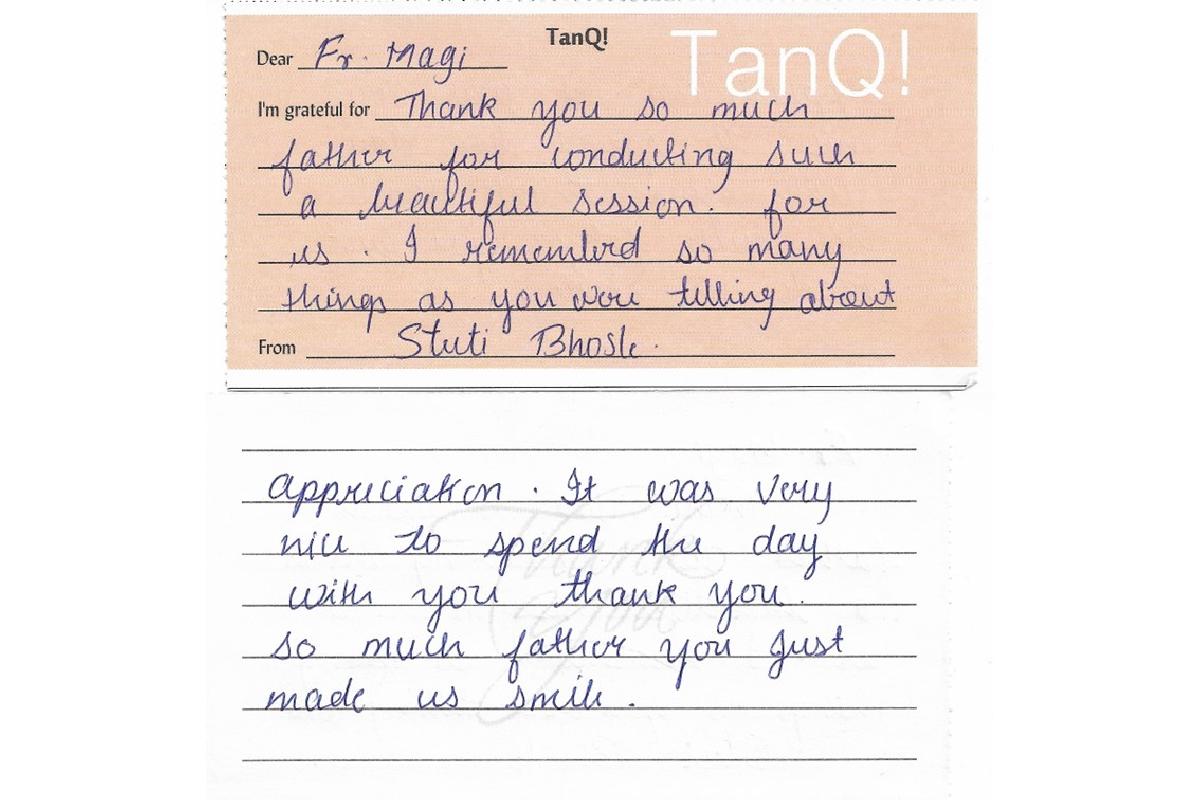 TanQ!
TanQ!
Dear Fr. Magi
I'm grateful for Thank you so much
father for conducting such
a beautiful session. for
us. I rememberd so many
things as you were telling about
From Stuti Bhosle.
appreciation. It was very
nice to spend the day
with you thank you.
so much father you just
made us smile.
Thank
You